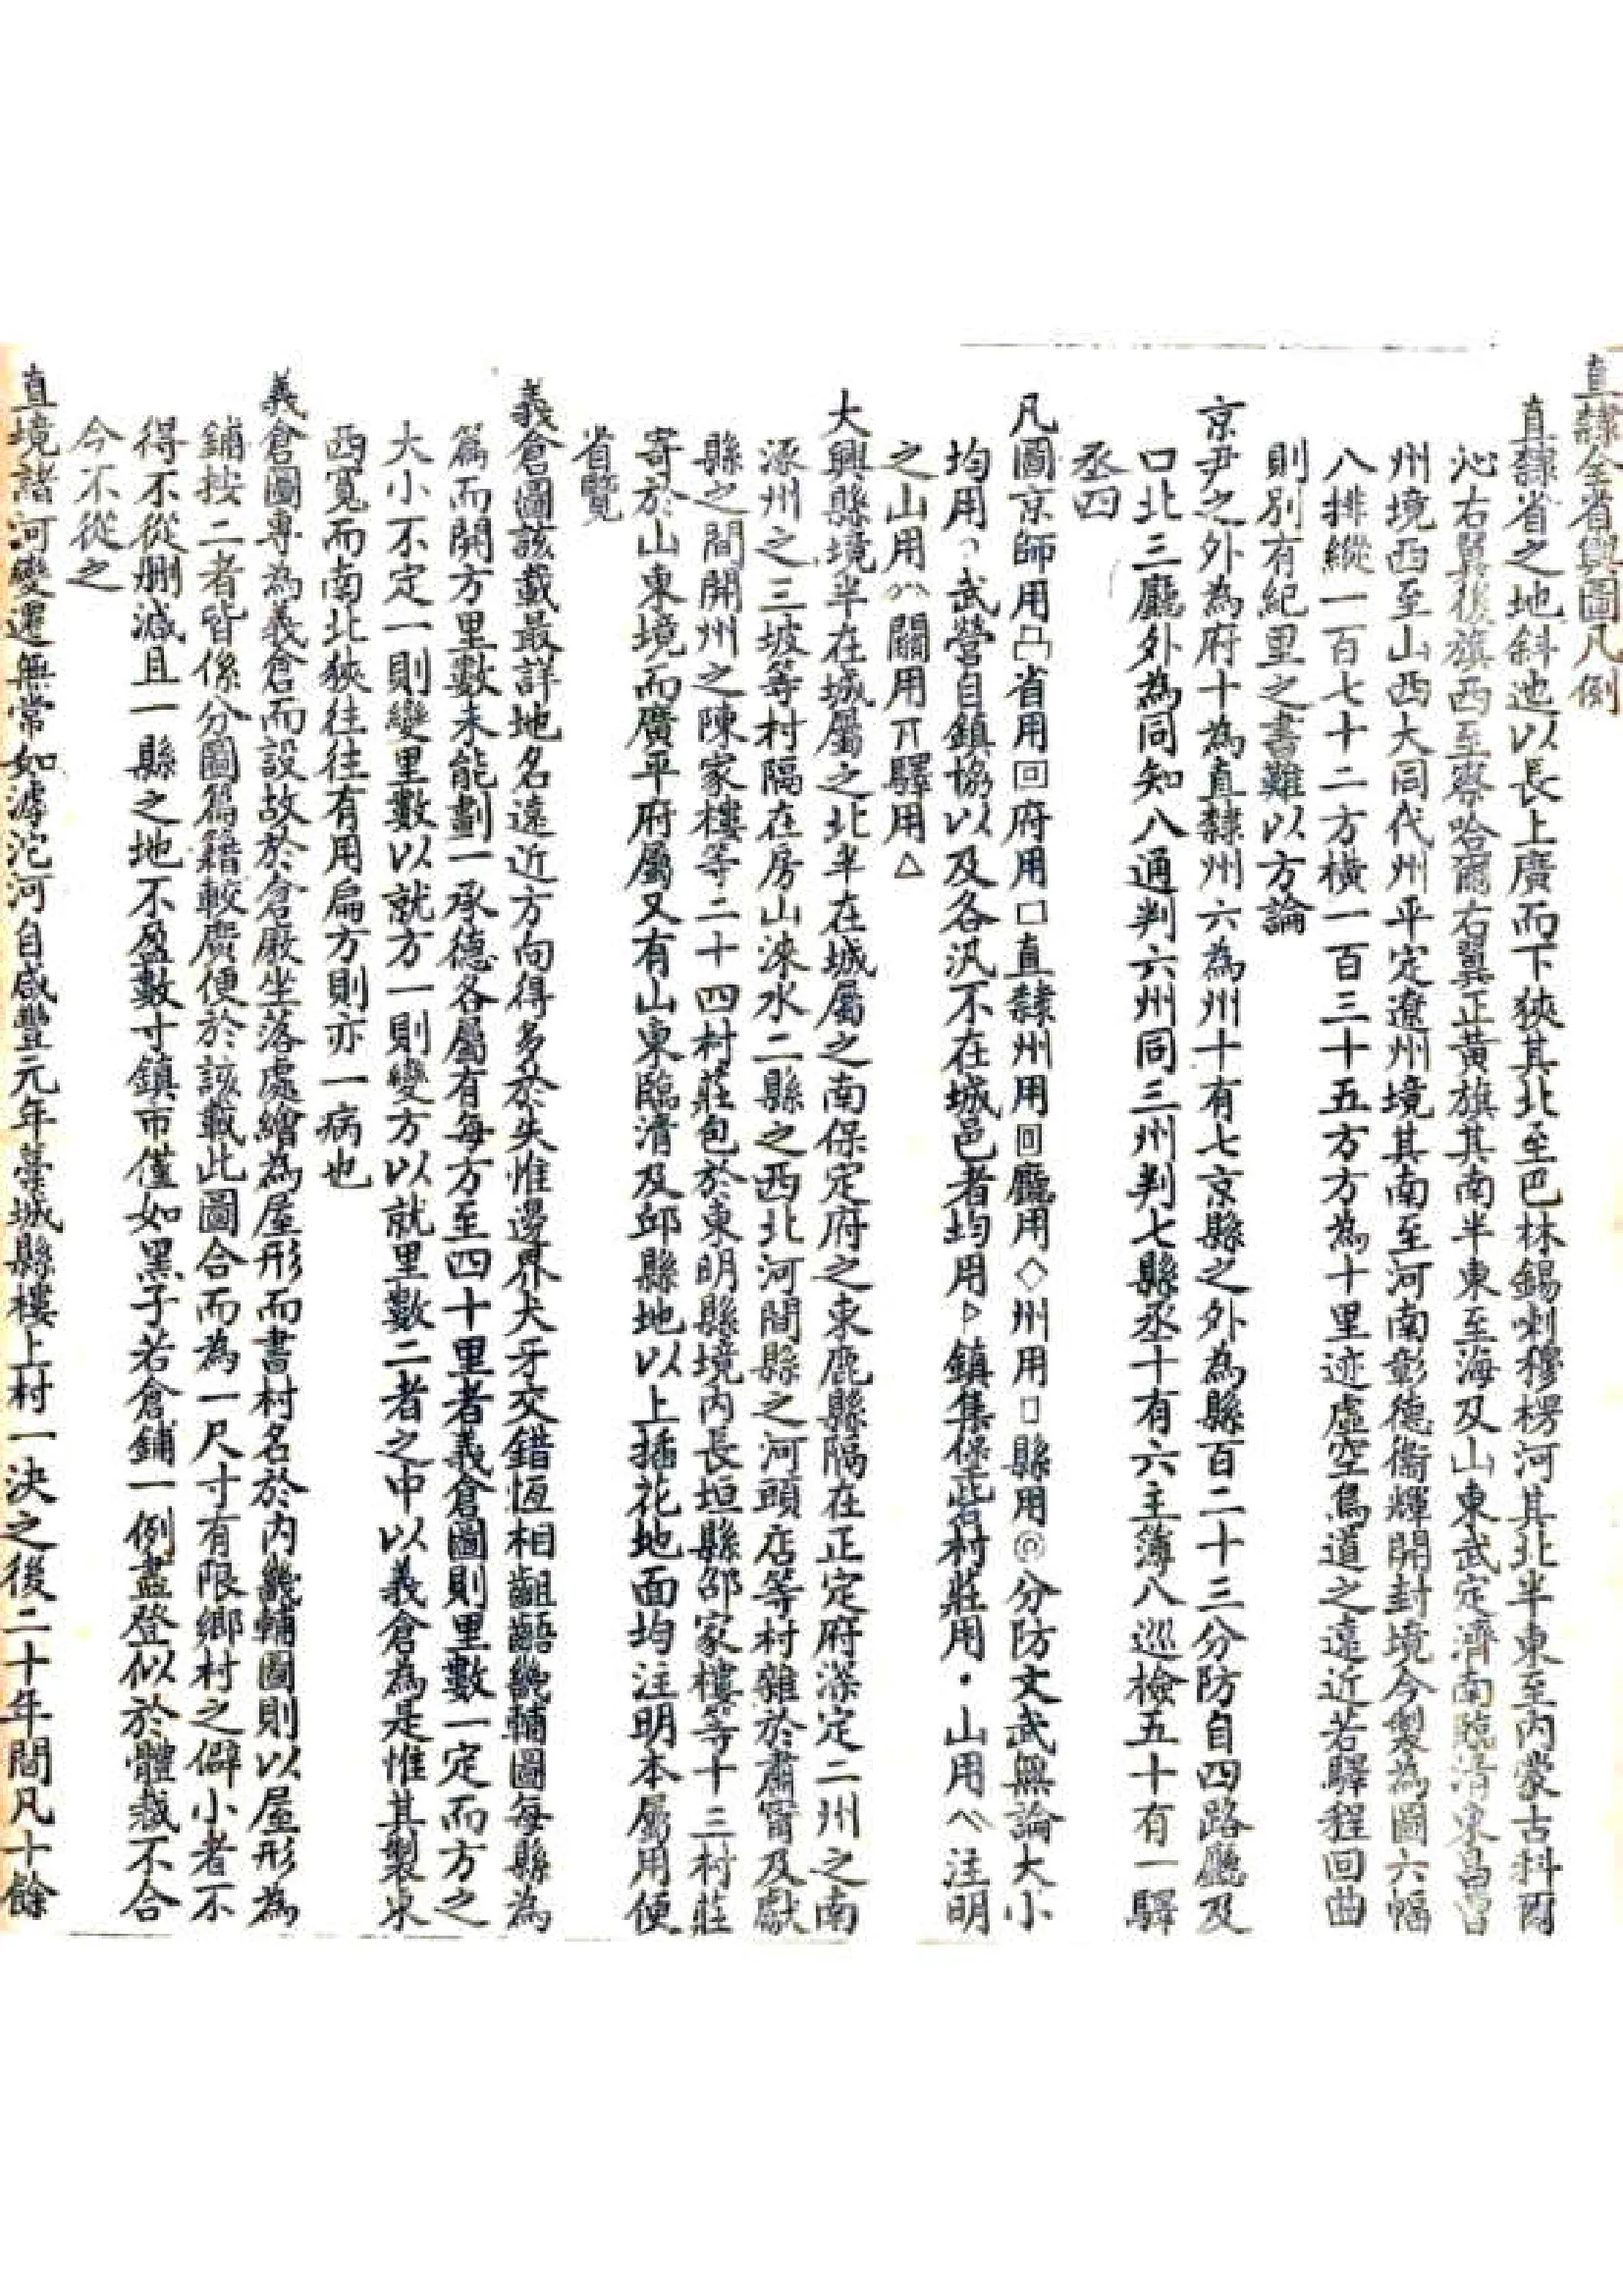 直隸全省輿圖凡例
直隸省之地斜迆以長上廣而下狹其北至巴林錫喇穆楞河其北半東至內蒙古科爾
沁右翼後旗西至察哈爾右翼正黃旗其南半東至海及山東武定濟南臨清東昌曹
州境西至山西大同代州平定遼州境其南至河南彰德衞輝開封境今製為圖六幅
八排縱一百七十二方橫一百三十五方方為十里迹虛空鳥道之遠近若驛程回曲
則別有紀里之書難以方論
京尹之外為府十為直隸州六為州十有七京縣之外為縣百二十三分防自四路廳及
口北三廳外為同知八通判六州同三州判七縣丞十有六主簿八巡檢五十有一驛
丞四
凡圖京師用凸省用回府用口直隸州用回廳用◇州用▯縣用◎分防文武無論大小
均用 武營自鎮協以及各汛不在城邑者均用 鎮集堡 村莊用・山用 注明
之山用 關用 驛用△
大興縣境半在城屬之北半在城屬之南保定府之束鹿縣隔在正定府深定二州之南
涿州之三坡等村隔在房山淶水二縣之西北河間縣之河頭店等村雜於肅甯及獻
縣之間開州之陳家樓等二十四村莊包於東明縣境內長垣縣邵家樓等十三村莊
寄於山東境而廣平府屬又有山東臨清及邱縣地以上插花地面均注明本屬用便
省覽
義倉圖該載最詳地名遠近方向得多於失惟邊界犬牙交錯恆相齟齬畿輔圖每縣為
篇而開方里數未能劃一承德各屬有每方至四十里者義倉圖則里數一定而方之
大小不定一則變里數以就方一則變方以就里數二者之中以義倉為是惟其製東
西寬而南北狹往往有用扁方則亦一病也
義倉圖專為義倉而設故於倉廒坐落處繪為屋形而書村名於內畿輔圖則以屋形為
鋪按二者皆係分圖篇籍較廣便於該載此圖合而為一尺寸有限鄉村之僻小者不
得不從删減且一縣之地不盈數寸鎮市僅如黑子若倉鋪一例盡登似於體裁不合
今不從之
直境諸河變遷無常如滹沱河自咸豐元年藁城縣樓上村一決之後二十年間凡十餘